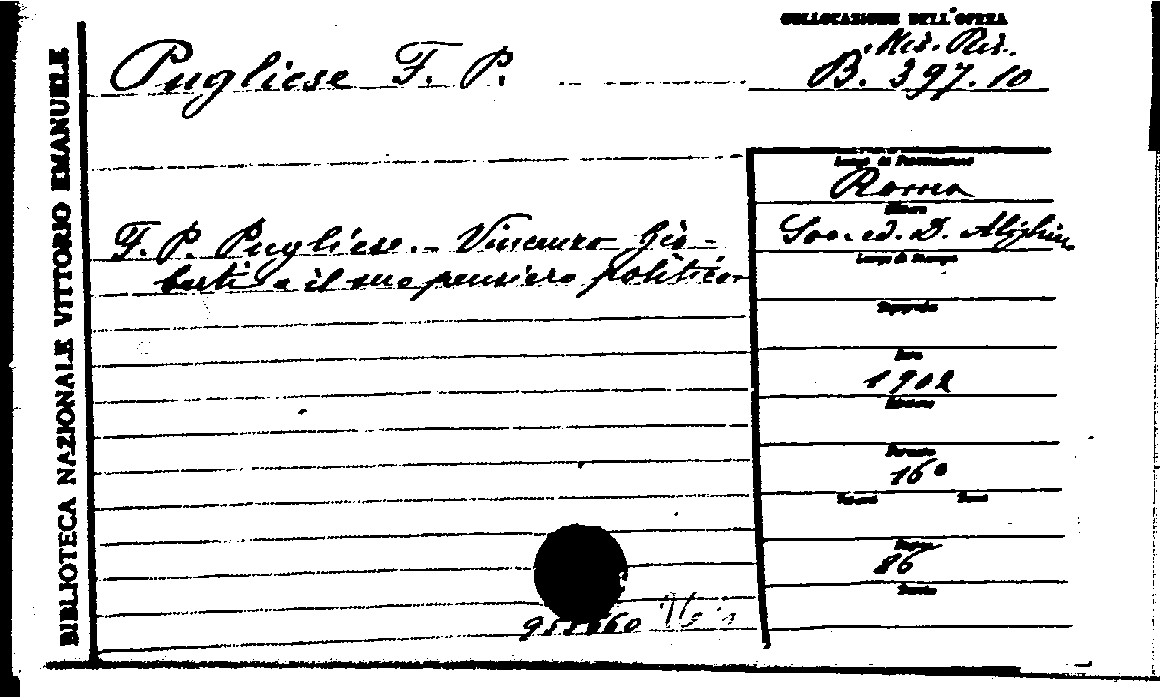 COLLOCAZIONE DELL'OPERA
Mis. Ris.
B. 397.10
Pugliese F. P.
BIBLIOTECA NAZIONALE VITTORIO EMANUELE
Luogo di Pubblicazione
Roma
Editore
Soc. ed. D. Alighieri
F. P. Pugliese. - Vincenzo Gio-
berti e il suo pensiero politico.
Luogo di Stampa
Tipografia
Data
1902
Edizione
Formato
16°
Volumi Tomi
Pagine
86